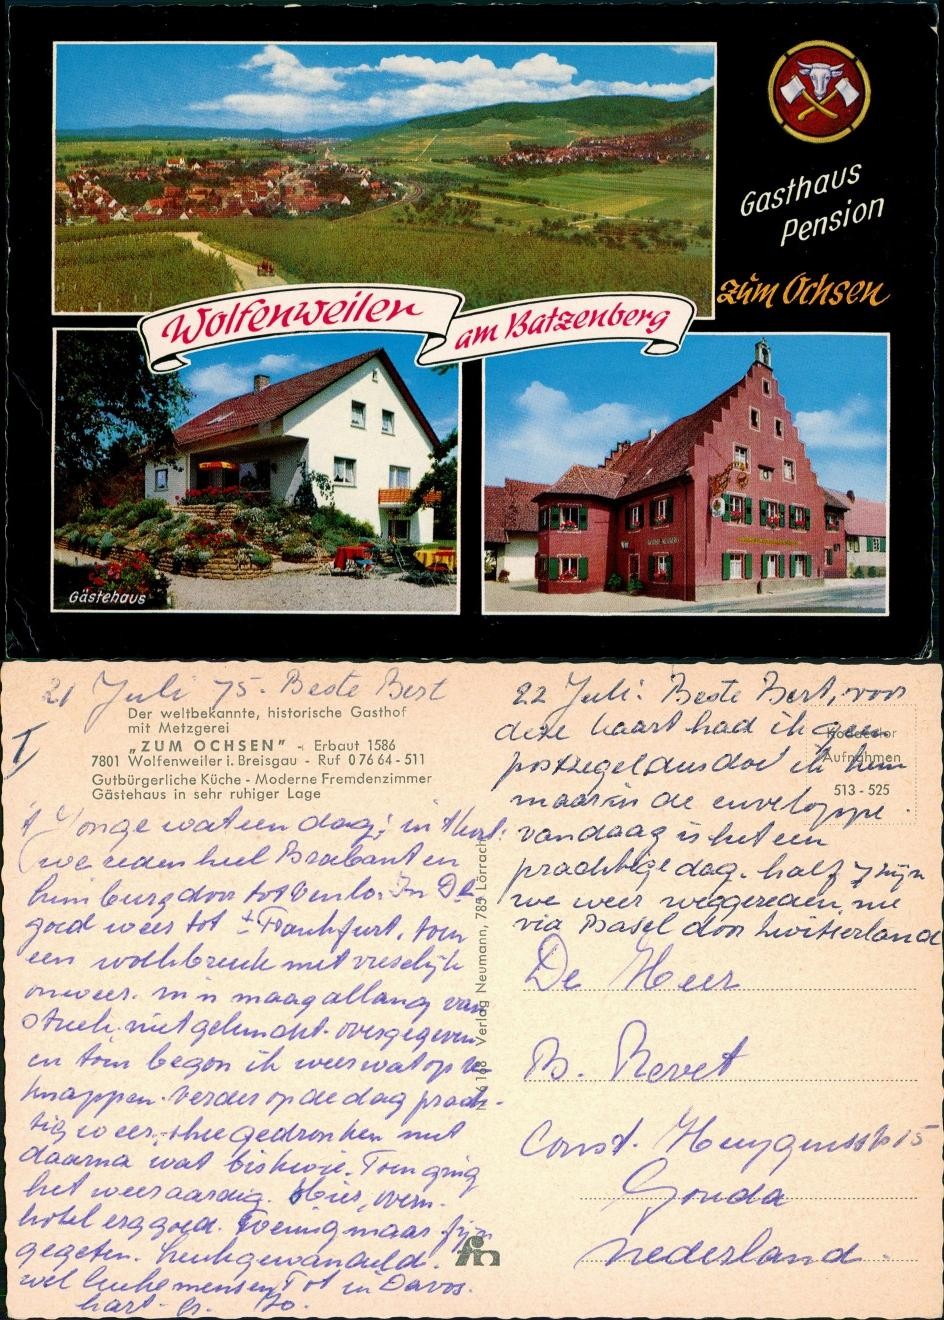 Gasthaus
Pension
zum Ochsen
Wolfenweiler
am Batzenberg
Gästehaus
21 Juli 75. Beste Bert
Der weltbekannte, historische Gasthof
mit Metzgerei
„ZUM OCHSEN" - Erbaut 1586
7801 Wolfenweiler i. Breisgau - Ruf 0 76 64 - 511
Gutbürgerliche Küche - Moderne Fremdenzimmer
Gästehaus in sehr ruhiger Lage
T
Jonge wat een dag; in
(we reden heel Brabant en
Limburg door tot Venlo. In De
goed weer tot ± Frankfurt, toen
een wolkbreuk met vreselijk
onweer. m'n maag allang van
streek. niet gelunched. overgegeven
en toen begon ik weer wat op te
knappen. Verder op de dag prach-
tig weer, thee gedronken met
daarna wat biskwie. Toen ging
het weer aardig. Hier, overn.
hotel erg goed. Weinig maar fijn
gegeten. Leuk gewandeld.
wel leuke mensen Tot in Davos.
hart. gr. Jo.
Verlag Neumann, 785 Lörrach
22 Juli: Beste Bert, voor
deze kaart had ik geen
postzegel dus doe ik hem
maar in de enveloppe.
vandaag is het een
prachtige dag. half 9 zijn
we weer weggereden, nu
via Basel door Zwitserland
Kodacolor
Aufnahmen
513 - 525
De Heer
B. Revet
Const. Huygensstr 15
Gouda
Nederland.